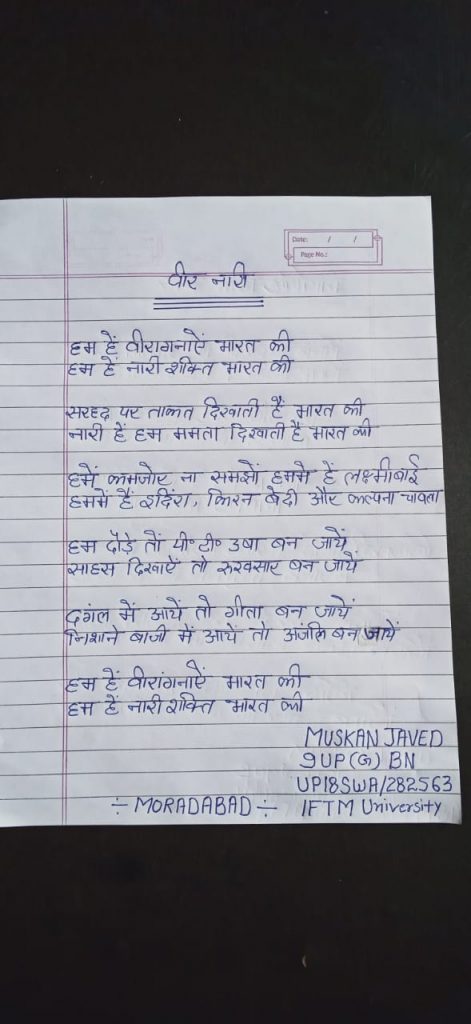 Date: / /
Page No.:
वीर नारी
हम हैं वीरागनाऐं भारत की
हम हैं नारी शक्ति भारत की
सरहद पर ताकत दिखाती हैं भारत की
नारी हैं हम ममता दिखाती हैं भारत की
हमें कमजोर ना समझों हममे हैं लक्ष्मीबाई
हममें हैं इदिंरा, किरन बेदी और कल्पना चावला
हम दौड़े तों पी॰ टी॰ उषा बन जायें
साहस दिखाऐं तो रुखसार बन जायें
दगंल में आयें तो गीता बन जायें
निशाने बाजी में आयें तो अंजलि बन जायें
हम हैं वीरांगनाऐं भारत की
हम हैं नारी शक्ति भारत की
MUSKAN JAVED
9UP(G) BN
UP18SWA/282563
÷ MORADABAD ÷ IFTM University